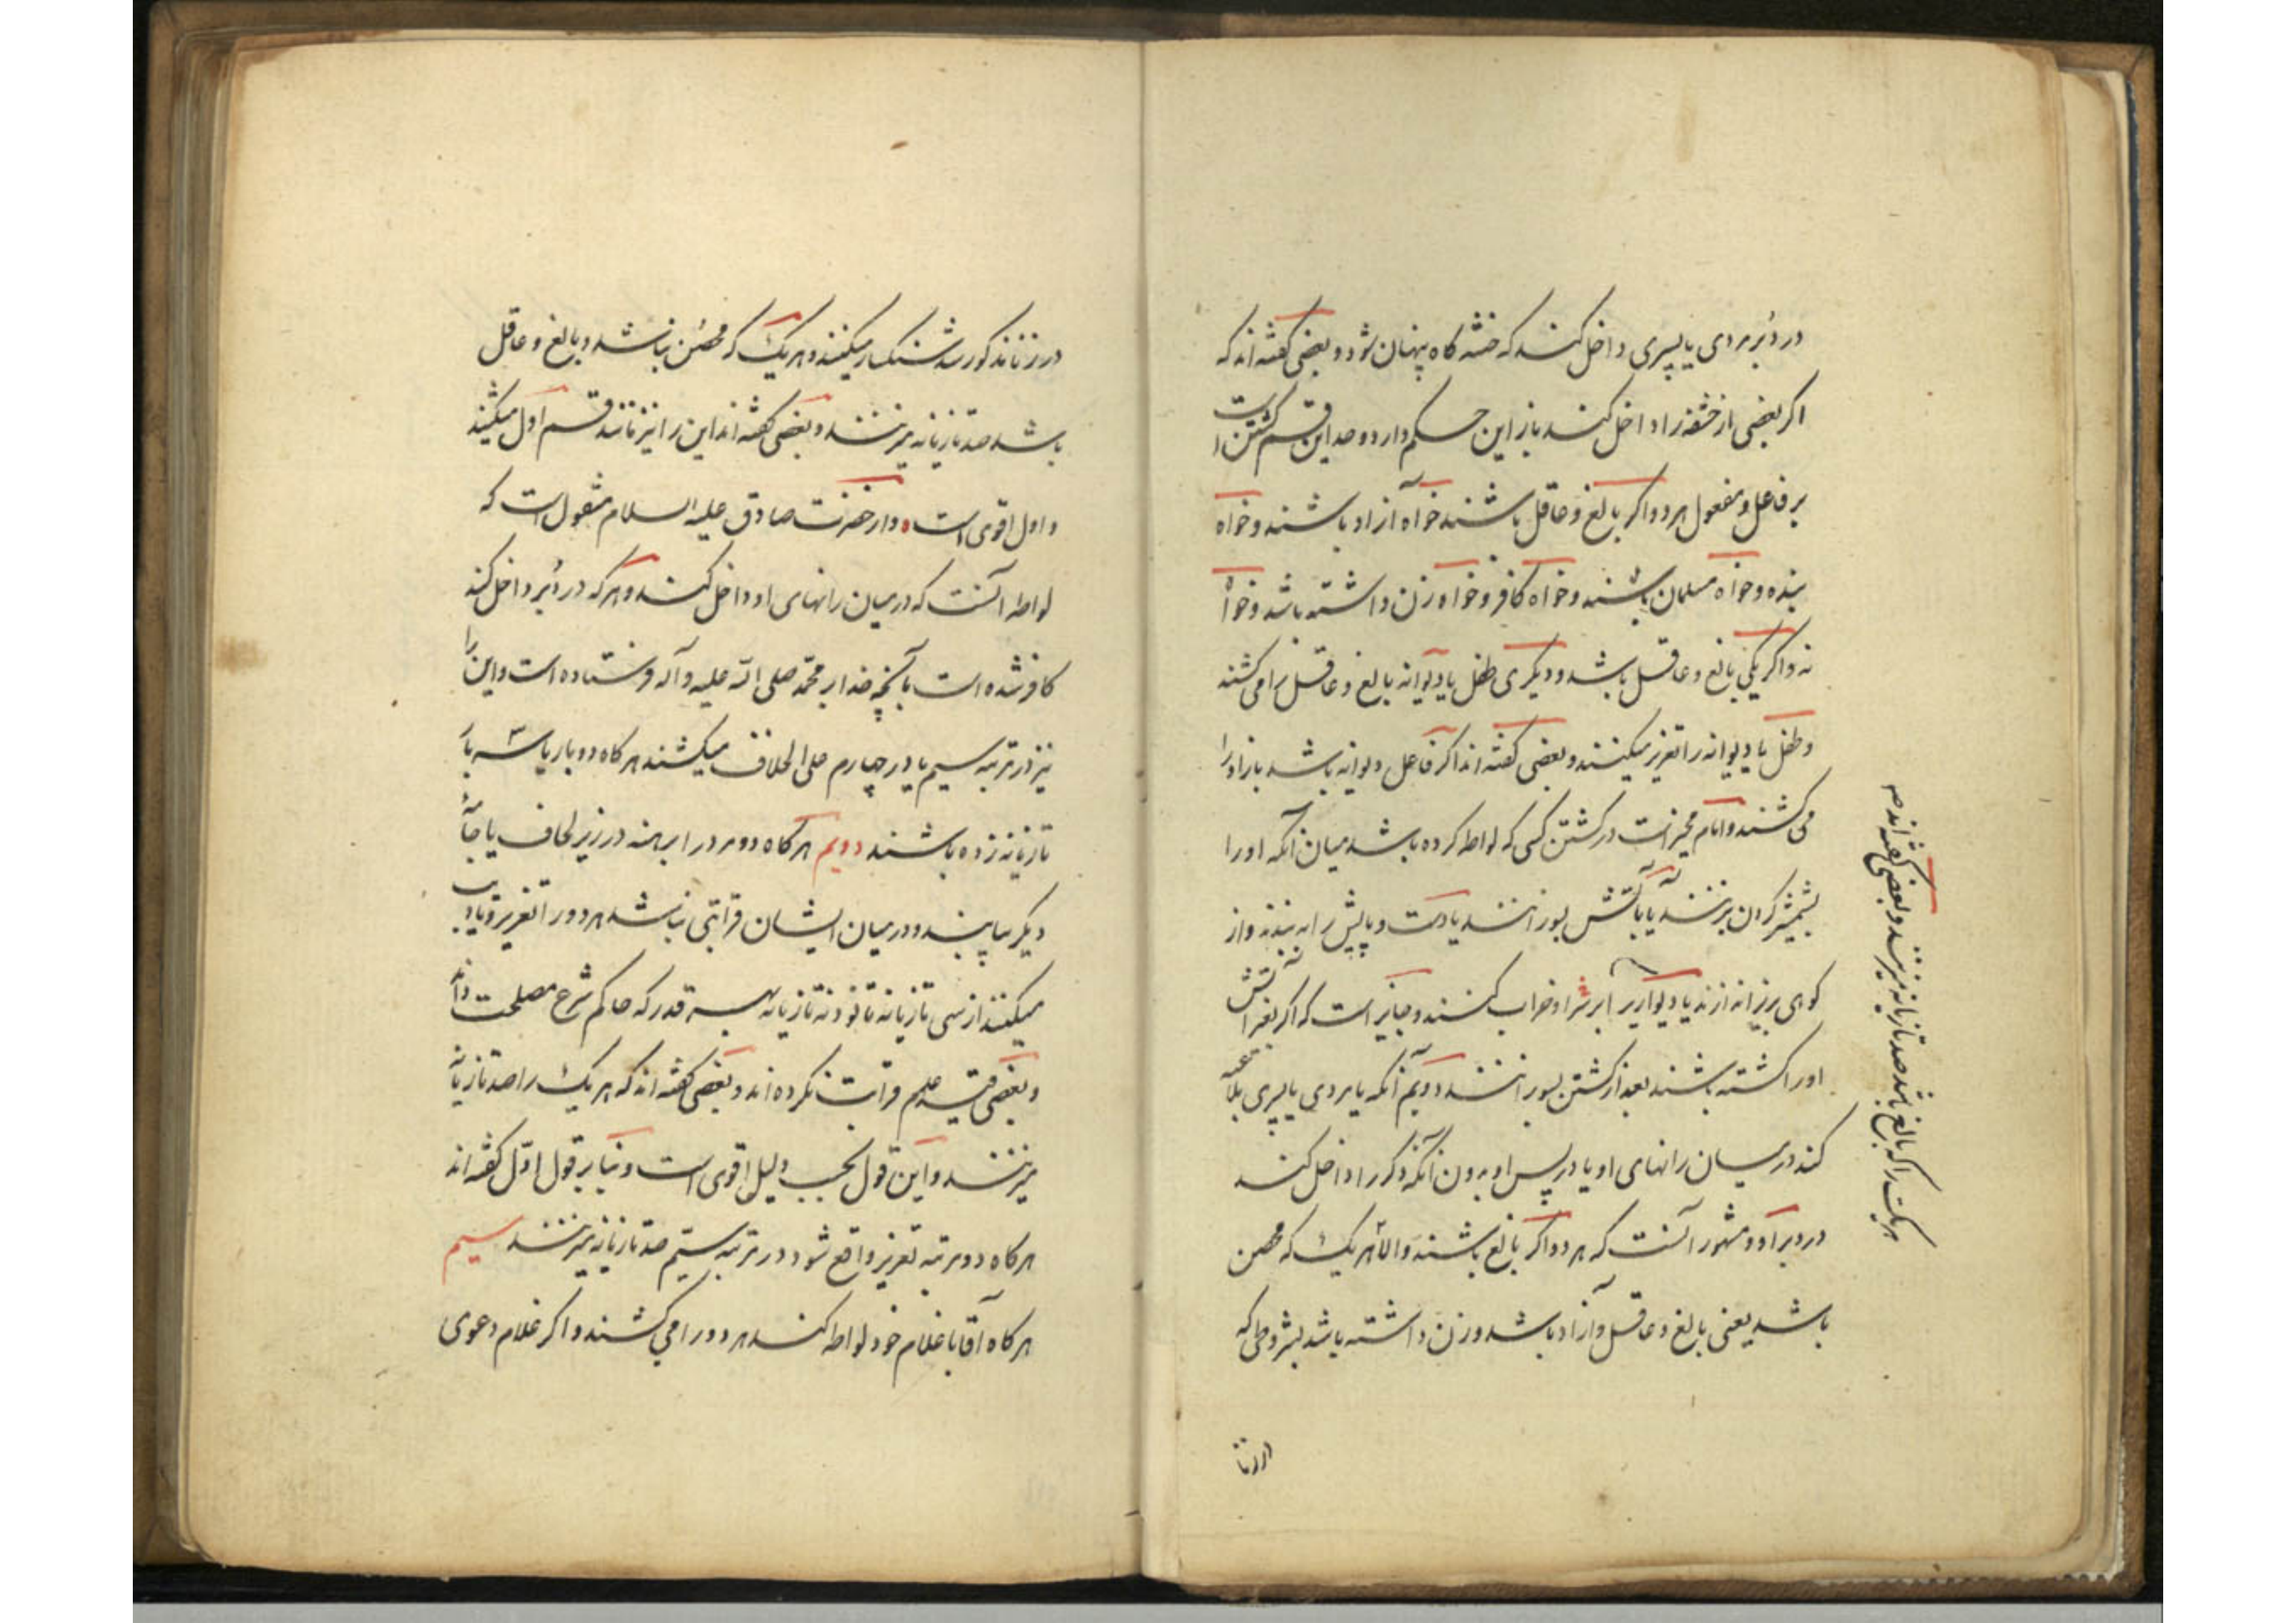 در دُبر مردی یا پسری داخل کند که ختنه گاه پنهان شود و بعضی گفته‌اند که
اگر بعضی از حشفه را داخل کند باز این حکم دارد و حد این قسم کشتن است
بر فاعل و مفعول هر دو اگر بالغ و عاقل باشند خواه آزاد باشند و خواه
بنده و خواه مسلمان باشند و خواه کافر و خواه زن داشته باشد و خواه
نه و اگر یکی بالغ و عاقل باشد و دیگری طفل یا دیوانه بالغ و عاقل را می کشند
و طفل یا دیوانه را تعزیر میکنند و بعضی گفته اند اگر فاعل دیوانه باشد باز او را
می کشند و امام مخیر است در کشتن کسی که لواطه کرده باشد میان آنکه او را
بشمشیر گردن بزنند یا بآتش بسوزانند یا دست و پایش را به بندند و از
کوهی بزیر اندازند یا دیواری بر او خراب کنند و جایز است که اگر بغیر آتش
او را کشته باشند بعد از کشتن بسوزانند دویم آنکه با مردی یا پسری ملاعبه
کند در میان رانهای او یا در پس او بدون آنکه ذکر را داخل کند
در دبر او و مشهور آنست که هر دو اگر بالغ باشند والا هر یک که محصن
باشد یعنی بالغ و عاقل و آزاد باشد و زن داشته باشد بشروطی که
در زنا
هر یک را که بالغ باشد صد تازیانه میزنند و بعضی گفته اند ص
در زنا مذکور شد سنگسار میکنند و هر یک که محصن نباشد و بالغ و عاقل
باشد صد تازیانه میزنند و بعضی گفته اند این را نیز مانند قسم اول میکشند
و اول اقوی است و از حضرت صادق علیه السلام منقول است که
لواطه آنست که در میان رانهای او داخل کند و هر که در دُبر داخل کند
کافر شده است بآنچه خدا بر محمّد صلی الله علیه و آله فرستاده است و این را
نیز در مرتبه سیم یا در چهارم علی الخلاف میکشند هر گاه دو بار یا سه بار
تازیانه زده باشند دویم هر گاه دو مرد را برهنه در زیر لحاف یا جامهٔ
دیگر بیابند و در میان ایشان قرابتی نباشد هر دو را تعزیر و تادیب
میکنند از سی تازیانه تا نود و نه تازیانه بهر قدر که حاکم شرع مصلحت داند
و بعضی قید عدم قرابت نکرده اند و بعضی گفته اند که هر یک را صد تازیانه
میزنند و این قول بحسب دلیل اقوی است و بنا بر قول اوّل گفته اند
هر گاه دو مرتبه تعزیر واقع شود در مرتبه سیّم صد تازیانه میزنند سیم
هر گاه آقا با غلام خود لواطه کند هر دو را می کشند و اگر غلام دعوی